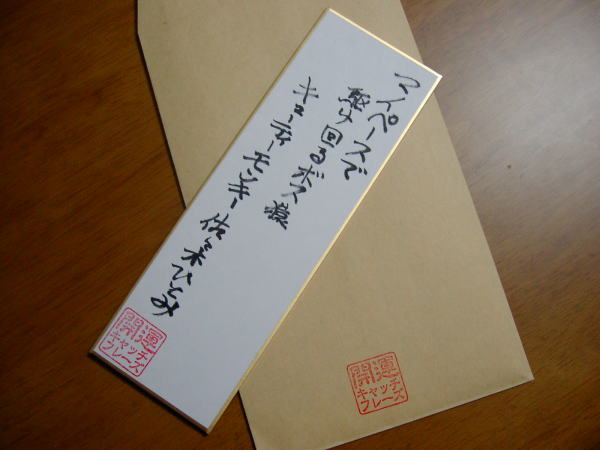 マイペースで
駆け回るボス猿
キューティーモンキー佐々木ひとみ
開運
キャッチ
フレーズ
開運
キャッチ
フレーズ